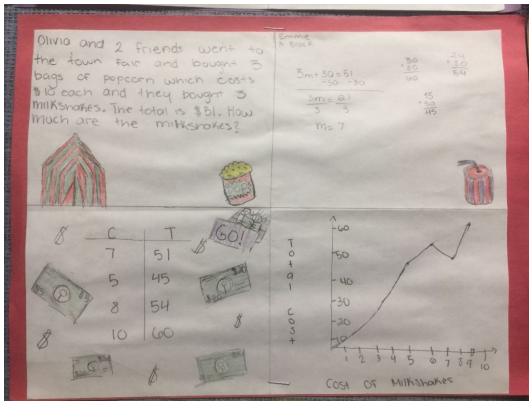 Olivia and 2 friends went to
the town fair and bought 3
bags of popcorn which costs
$10 each and they bought 3
milkshakes. The total is $51. How
much are the milkshakes?
3m+30=51
-30 -30
3m=21
3 3
m=7
30
+30
60
24
+30
54
15
+30
45
GO!
C T
7 51
5 45
8 54
10 60
Total Cost
60
50
40
30
20
10
1 2 3 4 5 6 7 8 9 10
Cost of Milkshakes